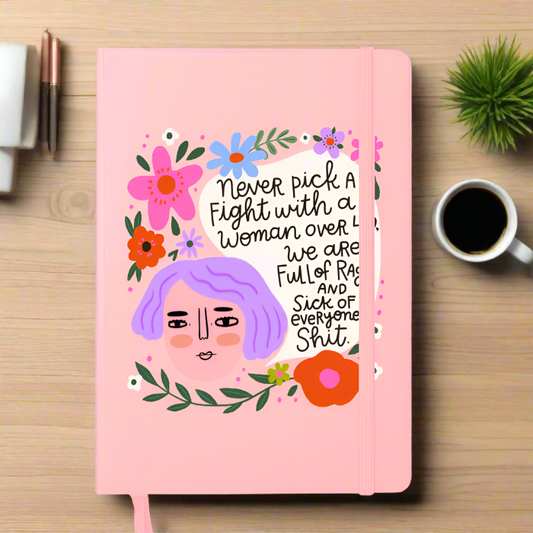 Never pick A
Fight with a
Woman over
We are
Full of
AND
Sick of
everyone
Shit.